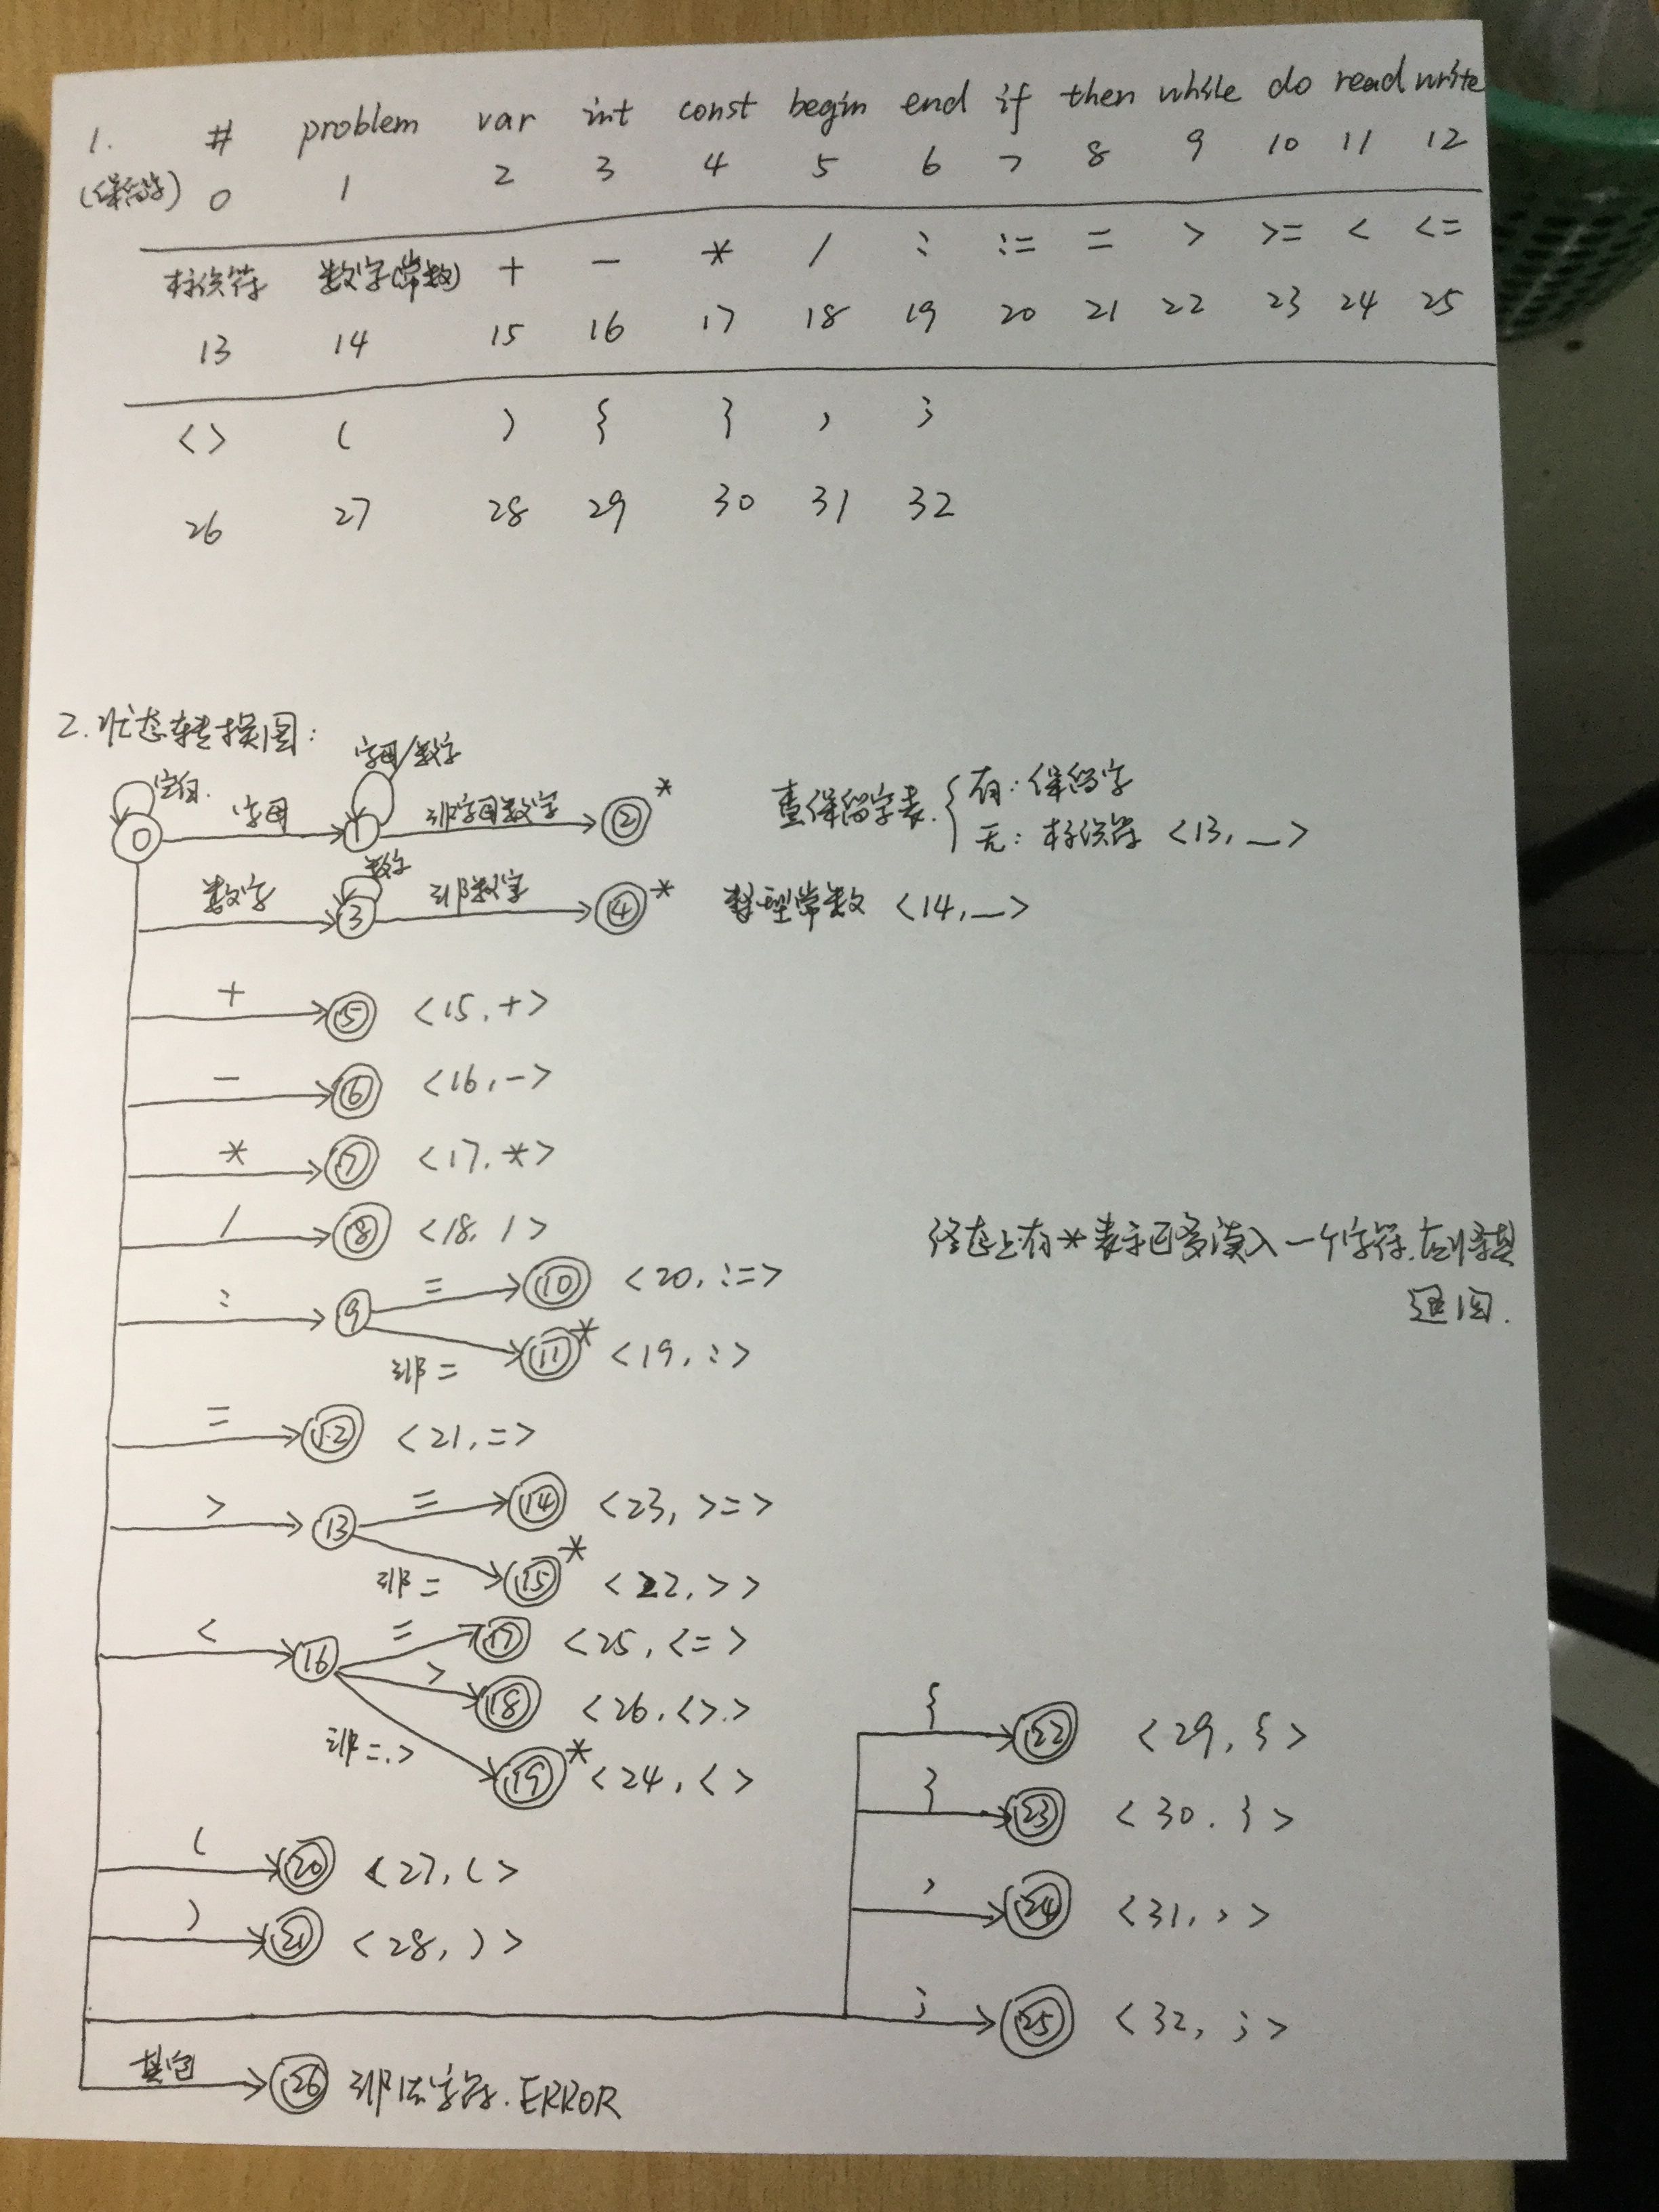 1. # problem var int const begin end if then while do read write
(保留字) 0 1 2 3 4 5 6 7 8 9 10 11 12
标识符 数字(常数) + - * / : := = > >= < <=
13 14 15 16 17 18 19 20 21 22 23 24 25
<> ( ) { } , ;
26 27 28 29 30 31 32
2. 状态转换图:
空白. 字母/数字
0 字母 1 非字母数字 2 * 查保留字表. { 有: 保留字
无: 标识符 <13, _>
数字
数字 3 非数字 4 * 整型常数 <14, _>
+ 5 <15, +>
- 6 <16, ->
* 7 <17, *>
/ 8 <18, />
终态上有*表示已多读入一个字符.应将其
退回.
: 9 = 10 <20, :=>
非= 11 * <19, :>
= 12 <21, =>
> 13 = 14 <23, >=>
非= 15 * <22, >>
< 16 = 17 <25, <=>
> 18 <26, <>>
非=,> 19 * <24, <>
( 20 <27, (>
) 21 <28, )>
{ 22 <29, {>
} 23 <30, }>
, 24 <31, ,>
; 25 <32, ;>
其它 26 非法字符. ERROR